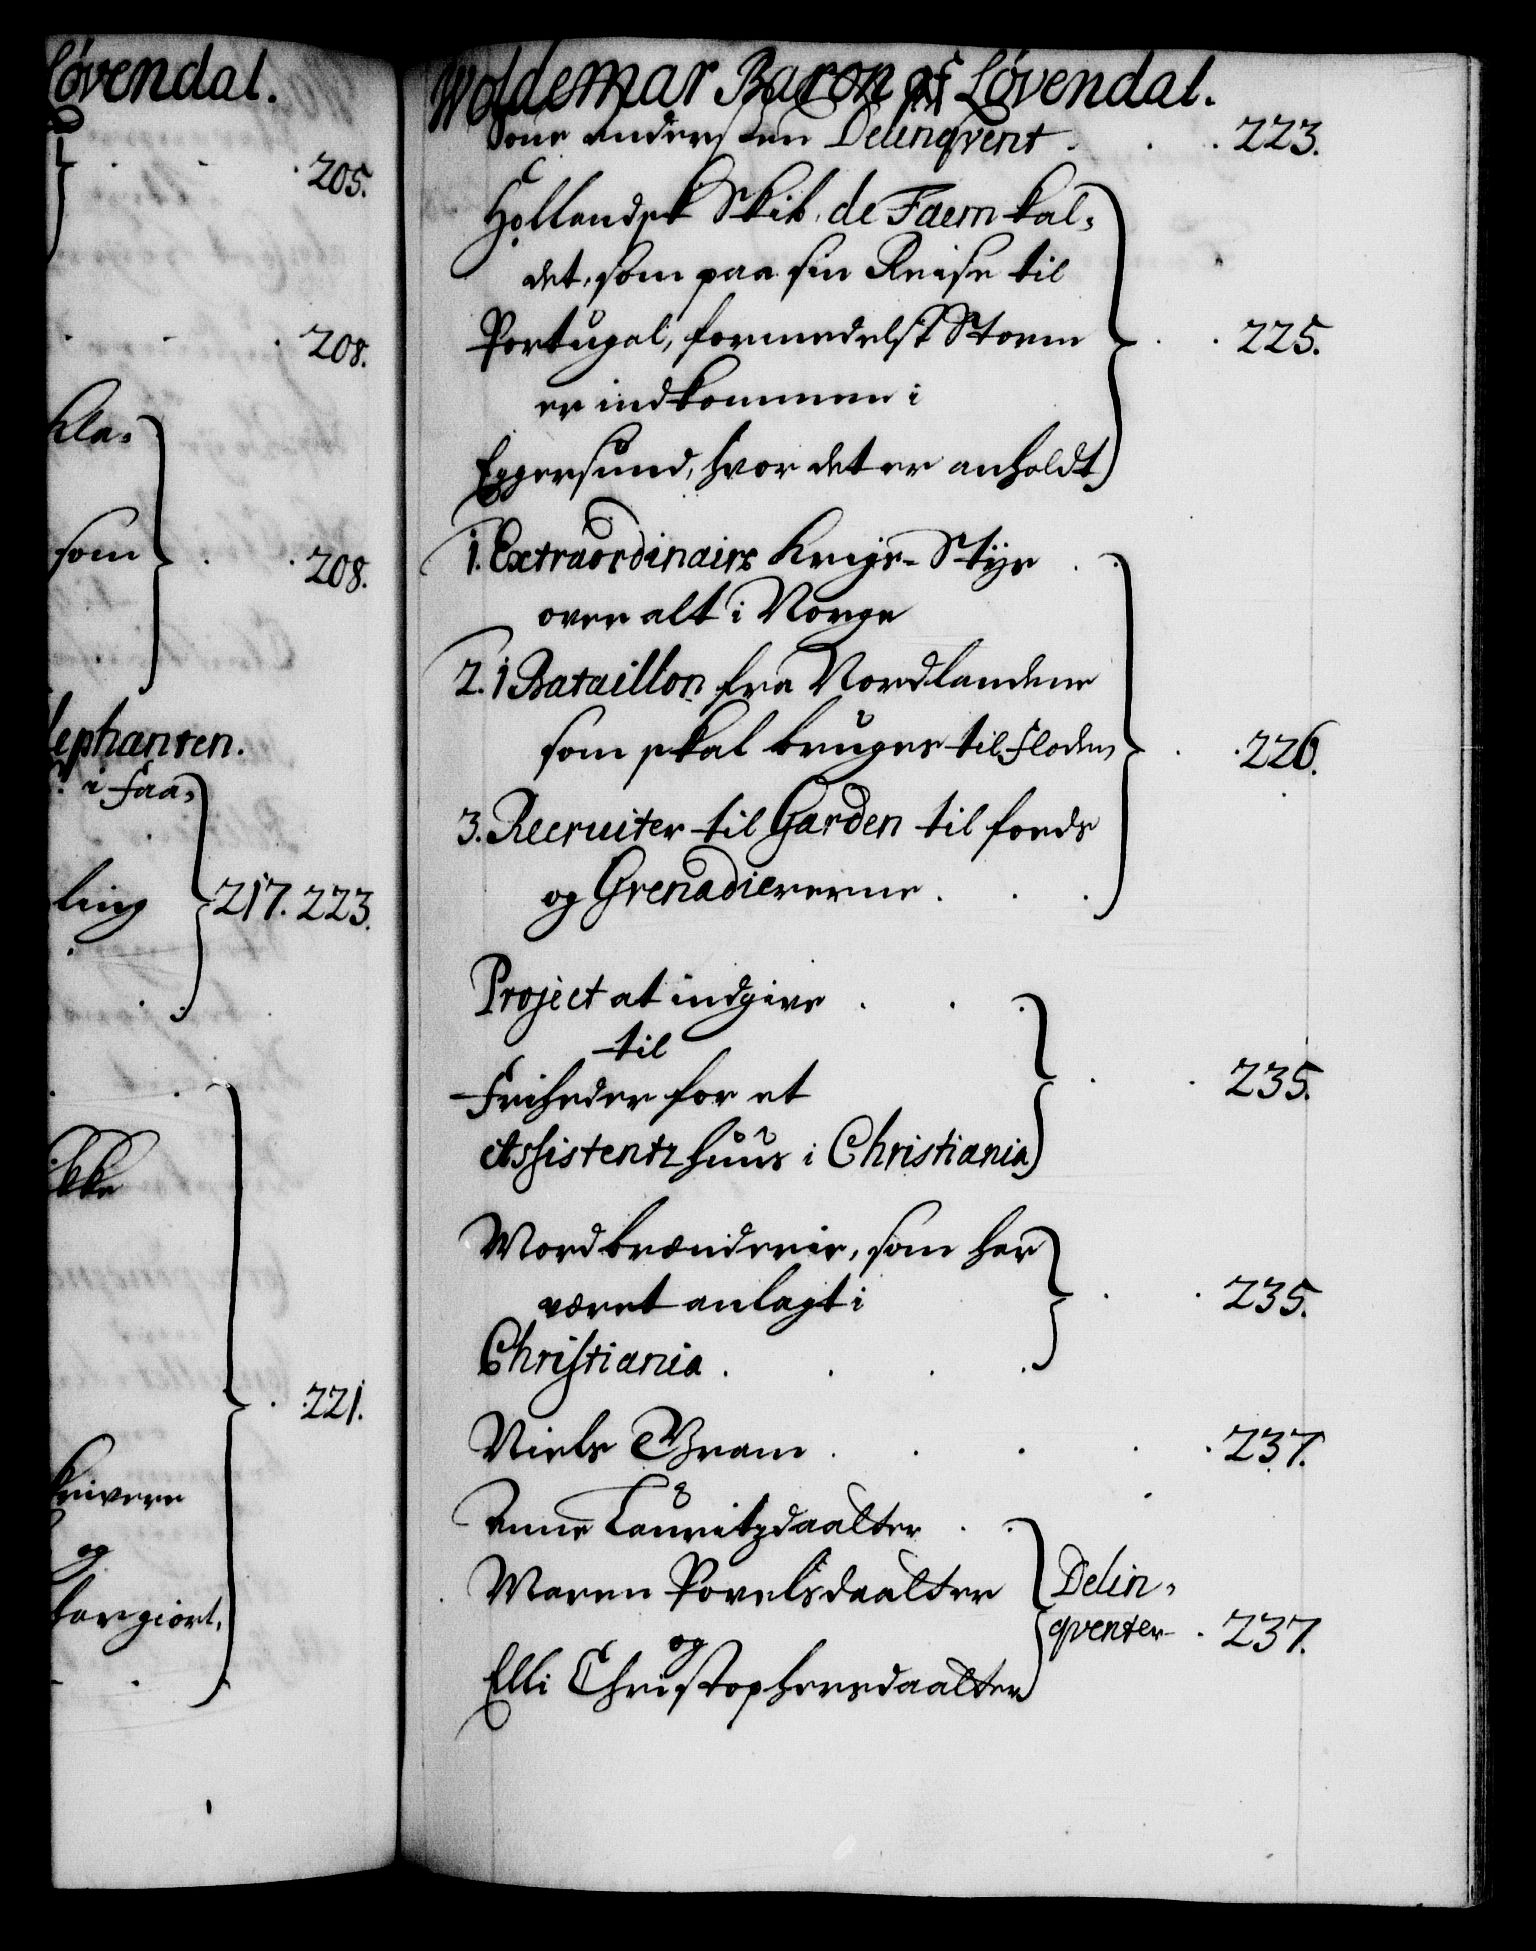 Løvendal.
205.
208.
kla-
som
208.
lephanten.
i Faa-
ling
217. 223.
ikke
221.
skrivere
og
forgiort,
Woldemar Baron af Løvendal.
Tone Andersten Delinqvent . . . 223.
Hollandsk Skib, de Faem kal-
det, som paa sin Reise til
Portugal, formedelst Storm
er indkommen i
Eggersund, hvor det er anholdt . . 225.
1. Extraordinaire Krigs-Styr
over alt i Norge
2. 1 Bataillon fra Nordlandene
som skal bruges til Floden,
226.
3. Recruiter til Garden til Fods
og Grenadiererne . . .
Project at indgive . . .
til
Friheder for et
235.
Assistentz huus i Christiania
Mordbrænderie, som har
været anlagt i
235.
Christiania . . . .
Niels Gram . . . . . 237.
Anne Lauritzdaatter . .
Maren Povelsdaatter
Delin-
qventer . 237.
og
Elli Christophersdaatter